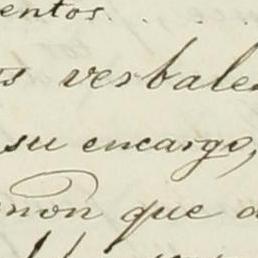 entos. . .
s verbale
su encargo,
non que